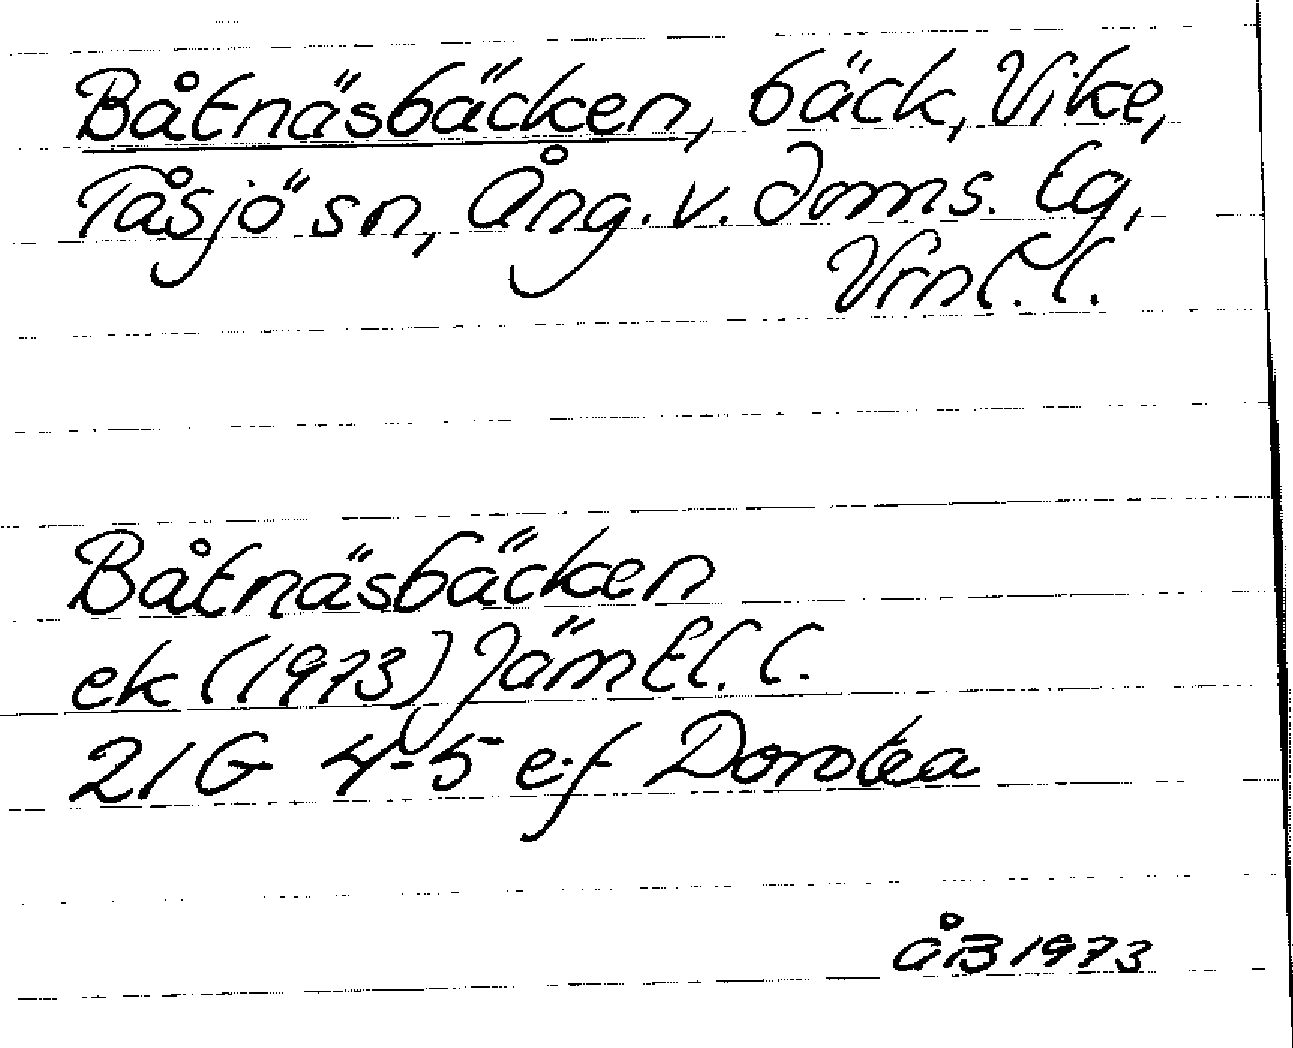 Båtnäsbäcken, bäck, Vike,
Tåsjö sn, Ång. v. doms. tg,
Vrnl. l.
Båtnäsbäcken
ek (1973) Jämtl. l.
21G 4-5 e-f Dorotea
ÅB 1973